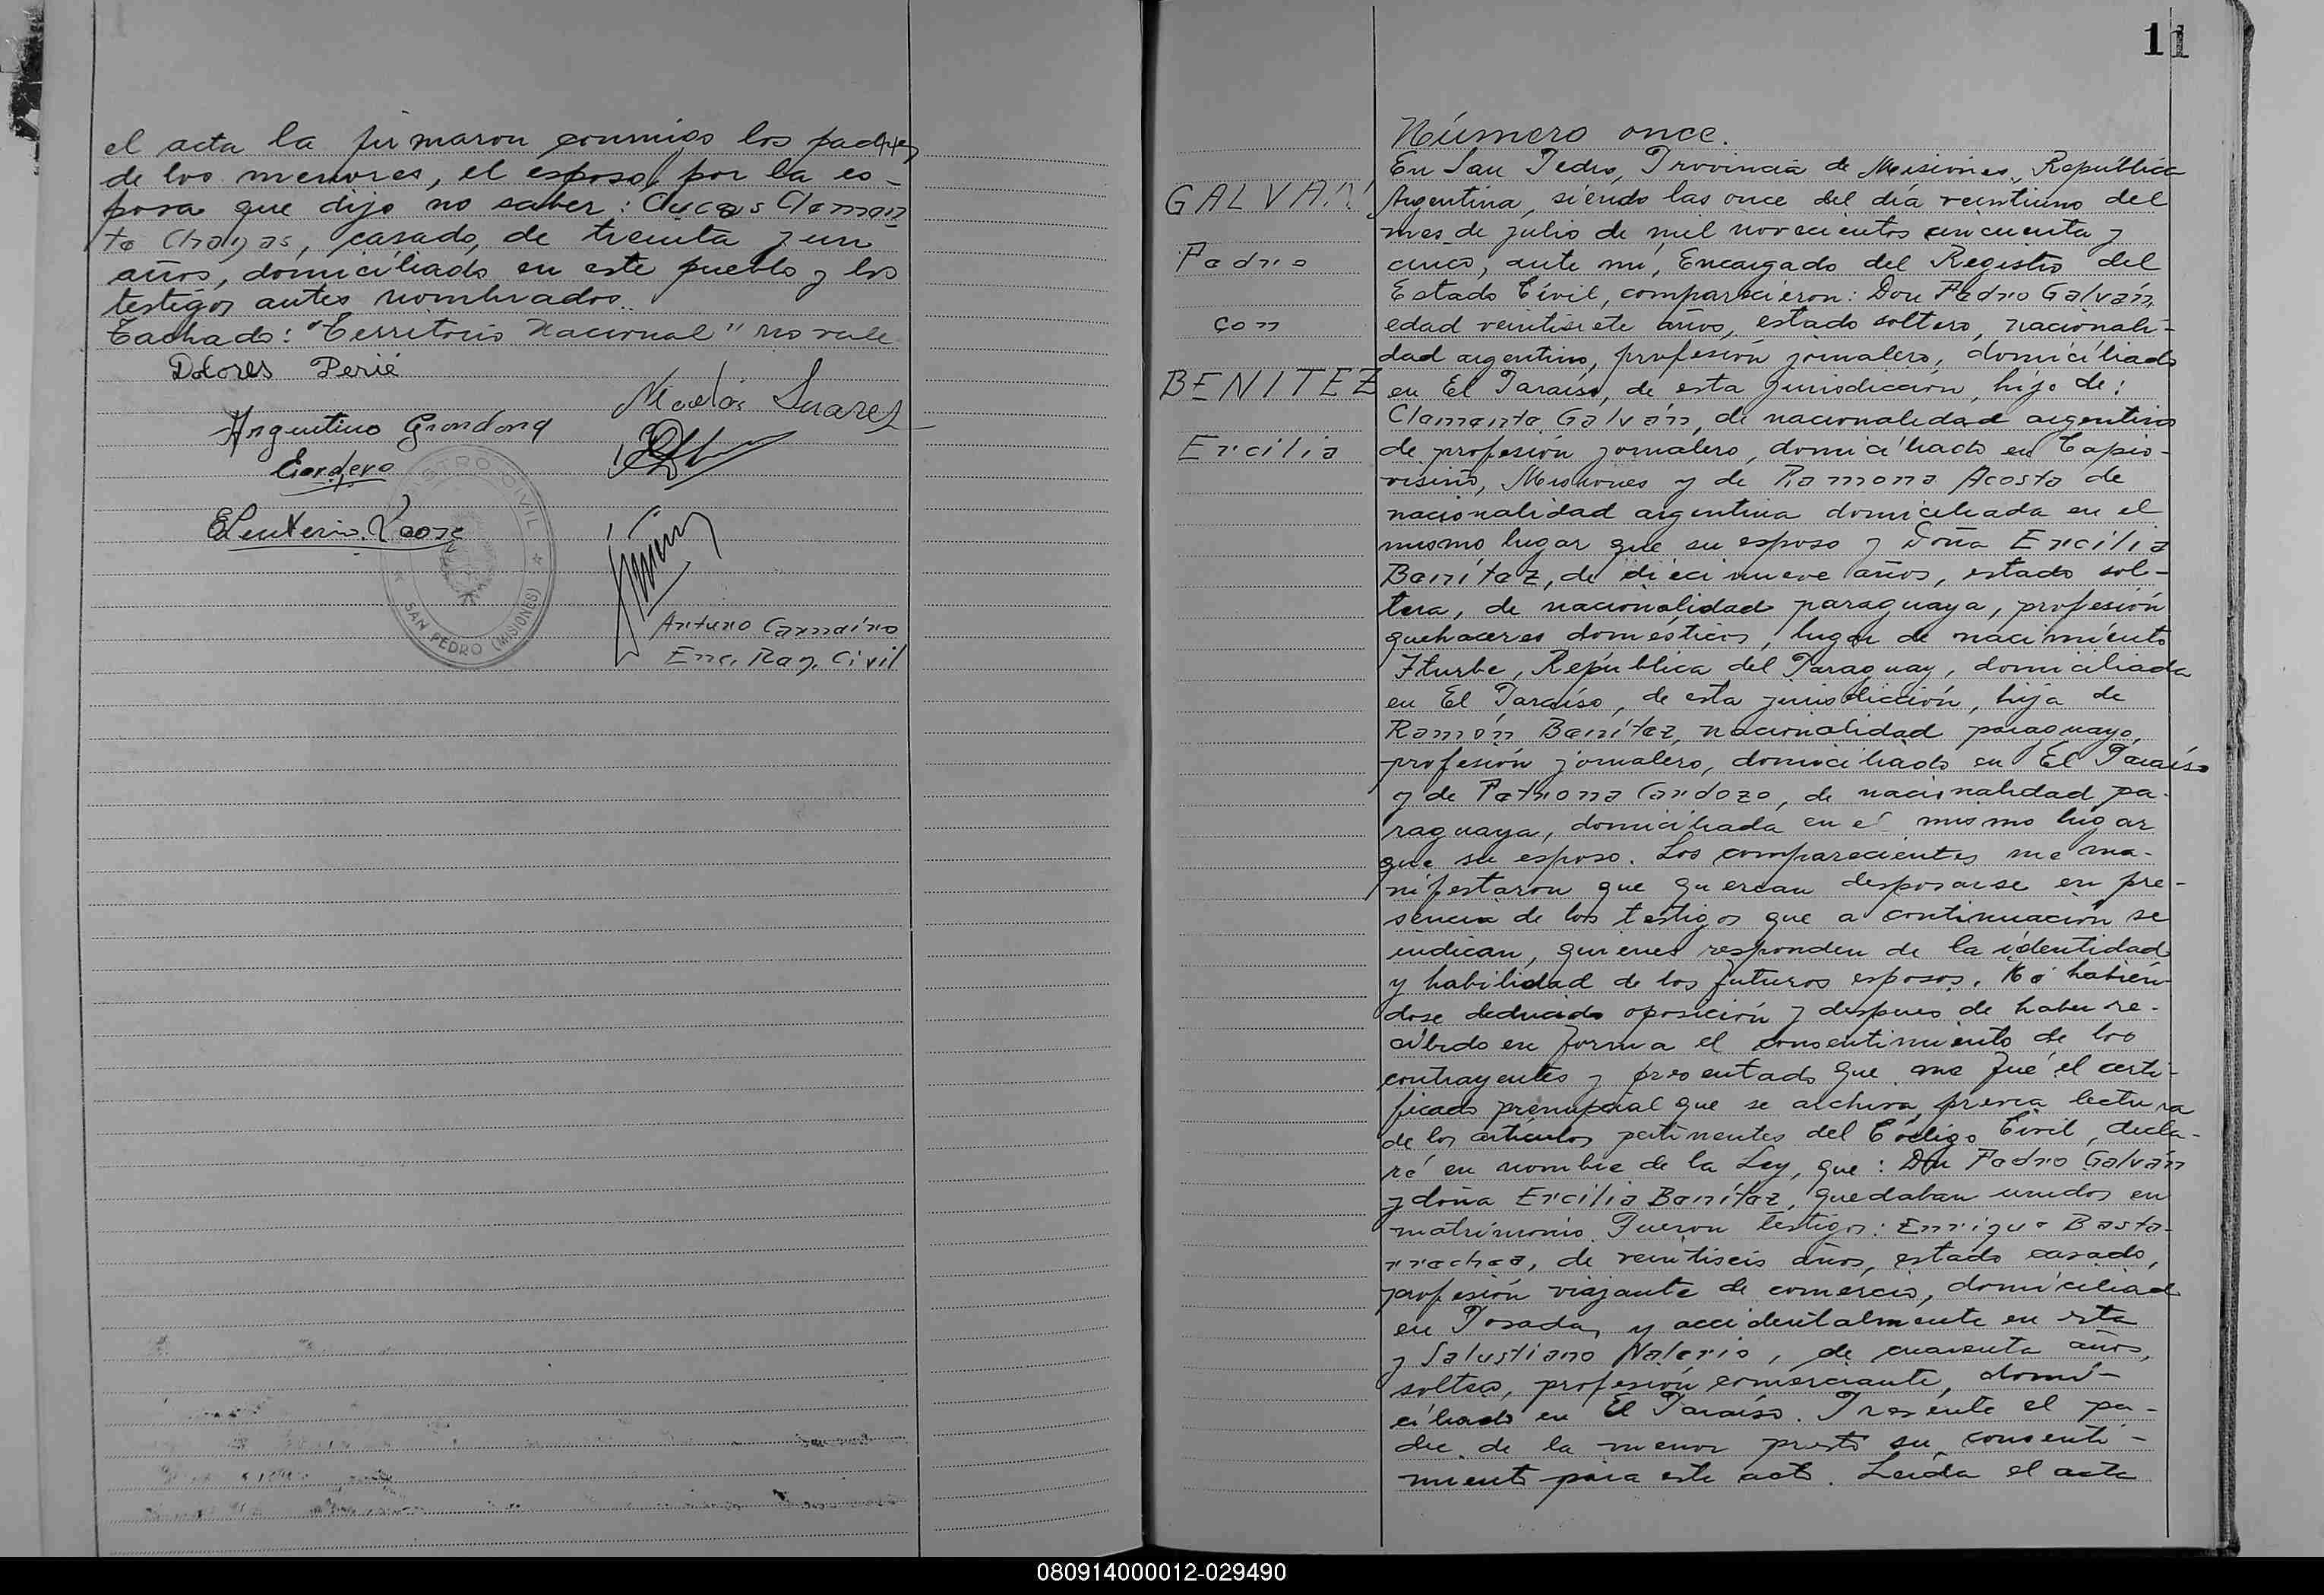 el acta la firmaron conmigo los padres
de los menores, el esposo, por la es-
posa que dijo no saber: Lucas Clemen
te Chagas, casado, de treinta y un
años, domiciliado en este pueblo y los
testigos antes nombrados.
Tachado: "Territorio Nacional" no vale
Dolores Perié
Suarez
Argentino Grondona
Cordero
Eleuterio
REGISTRO CIVIL
SAN PEDRO (MISIONES)
Arturo
Enc. Reg. Civil
11
Número once.
GALVÁN
Pedro
con
BENITEZ
Ercilia
En San Pedro, Provincia de Misiones, República
Argentina, siendo las once del día veintiuno del
mes de julio de mil novecientos cincuenta y
cinco, ante mí, Encargado del Registro del
Estado Civil, comparecieron: Don Pedro Galván
edad veintisiete años, estado soltero, nacionali-
dad argentino, profesión jornalero, domiciliado
en El Paraíso, de esta jurisdicción, hijo de:
Clemente Galván, de nacionalidad argentino
de profesión jornalero, domiciliado en Capio-
visiño, Misiones y de Ramona Acosta de
nacionalidad argentina domiciliada en el
mismo lugar que su esposo y Doña Ercilia
Benítez, de diecinueve años, estado sol-
tera, de nacionalidad paraguaya, profesión
quehaceres domésticos, lugar de nacimiento
Iturbe, República del Paraguay, domiciliada
en El Paraíso, de esta jurisdicción, hija de
Ramón Benítez, nacionalidad paraguayo,
profesión jornalero, domiciliado en El Paraíso
y de Petrona Cardozo, de nacionalidad pa-
raguaya, domiciliada en el mismo lugar
que su esposo. Los comparecientes me ma-
nifestaron que querean desposarse en pre-
sencia de los testigos que a continuación se
indican, quienes responden de la identidad
y habilidad de los futuros esposos. No habién-
dose deducido oposición y despues de haber re-
cibido en forma el consentimiento de los
contrayentes y presentado que me fué el certi-
ficado prenupcial que se archiva, previa lectura
de los artículos pertinentes del Código Civil, decla-
ré en nombre de la Ley, que: Don Pedro Galván
y doña Ercilia Benítez, quedaban unidos en
matrimonio. Fueron testigos: Enrique Basta-
rrechea, de veintiseis años, estado casado,
profesión viajante de comercio, domiciliado
en Posadas y accidentalmente en esta
y Salustiano Valerio, de cuarenta años,
soltero, profesión comerciante, domi-
ciliado en El Paraíso. Presente el pa-
dre de la menor prestó su consenti-
miento para este acto. Leída el acta
080914000012-029490